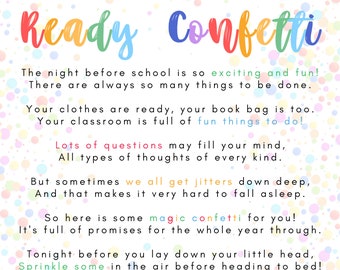 Ready Confetti
The night before school is so exciting and fun!
There are always so many things to be done.
Your clothes are ready, your book bag is too.
Your classroom is full of fun things to do!
Lots of questions may fill your mind,
All types of thoughts of every kind.
But sometimes we all get jitters down deep,
And that makes it very hard to fall asleep.
So here is some magic confetti for you!
It's full of promises for the whole year through.
Tonight before you lay down your little head,
Sprinkle some in the air before heading to bed!